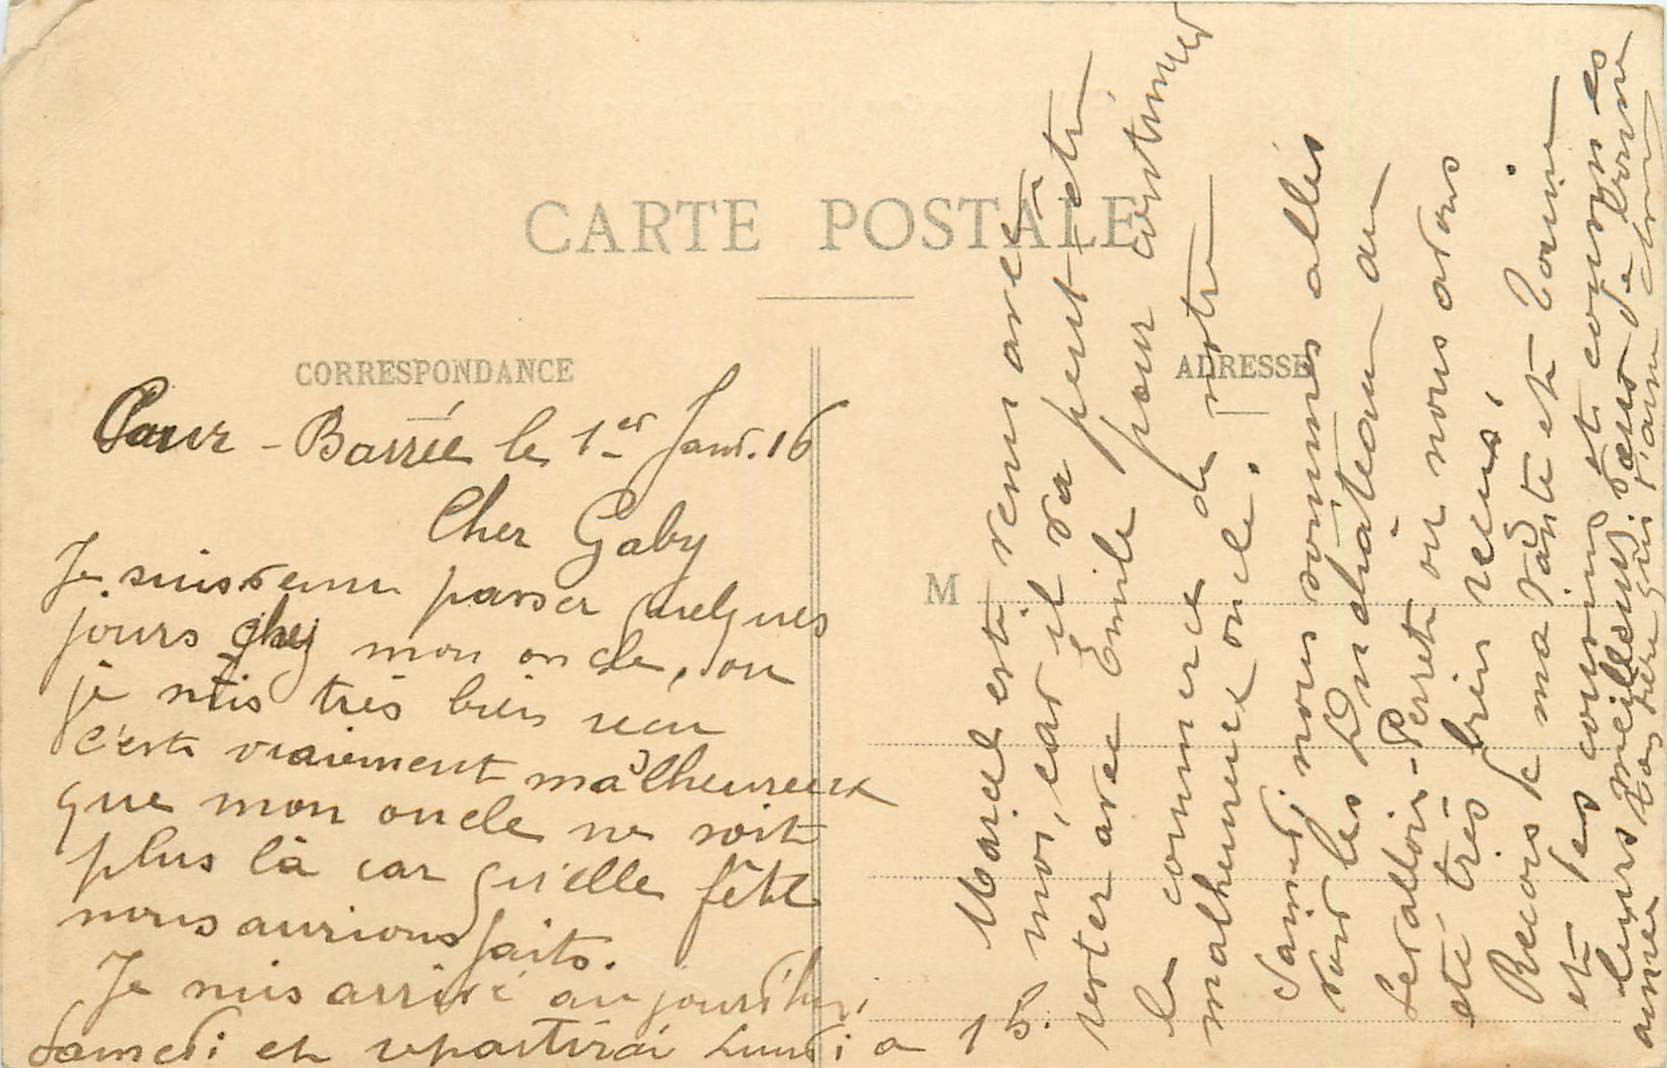 CARTE POSTALE
CORRESPONDANCE
ADRESSE
M
Cour-Barrée le 1er Janv. 16
Cher Gaby
Je suis venu passer quelques
jours chez mon oncle, ou
je suis très bien recu
c'est vraiement malheureux
que mon oncle ne soit
plus là car qu'elle fête
nous aurions faits.
Je suis arrivé aujourd'hui
Samedi et repartirai Lundi a 15.
Marcel est venu avec
moi, car il va peut-être
rester avec Emile pour continuer
le commerce de notre
malheureux oncle.
Samedi nous sommes allés
voir les Duchâteau au
Levallois-Perret ou nous avons
été très bien recus.
Recois de ma tante et Louise
et tes cousins et cousines
leurs meilleurs vœux de bonne
année Ton frère qui t'aime